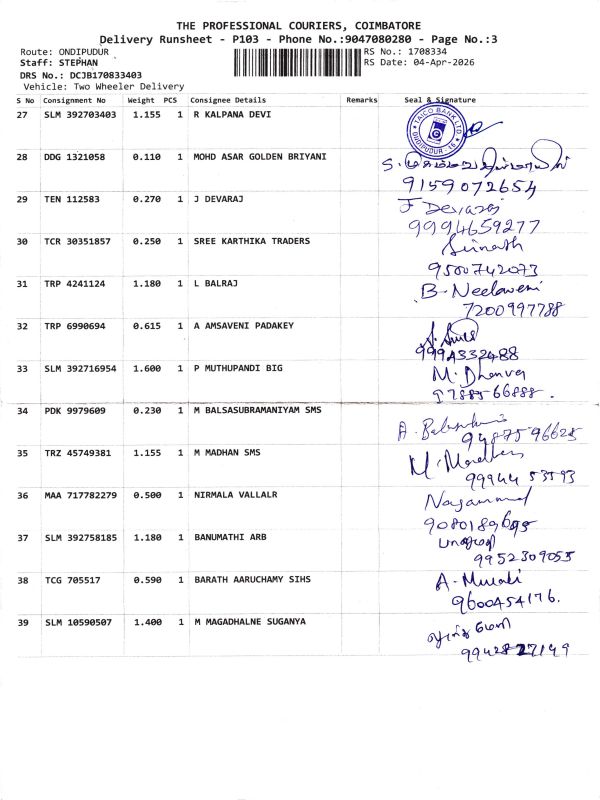 THE PROFESSIONAL COURIERS, COIMBATORE
Delivery Runsheet - P103 - Phone No.:9047080280 - Page No.:3
Route: ONDIPUDUR RS No.: 1708334
Staff: STEPHAN RS Date: 04-Apr-2026
DRS No.: DCJB170833403
Vehicle: Two Wheeler Delivery
S No Consignment No Weight PCS Consignee Details Remarks Seal & Signature
27 SLM 392703403 1.155 1 R KALPANA DEVI
TAICO BANK LTD. ONDIPUDUR
28 DDG 1321058 0.110 1 MOHD ASAR GOLDEN BRIYANI
9159072654
29 TEN 112583 0.270 1 J DEVARAJ J Devaraj
9994659277
30 TCR 30351857 0.250 1 SREE KARTHIKA TRADERS
9500742073
31 TRP 4241124 1.180 1 L BALRAJ B. Neelaveni
7200997788
32 TRP 6990694 0.615 1 A AMSAVENI PADAKEY
9994332488
33 SLM 392716954 1.600 1 P MUTHUPANDI BIG
97885 66888.
34 PDK 9979609 0.230 1 M BALSASUBRAMANIYAM SMS
94875 96625
35 TRZ 45749381 1.155 1 M MADHAN SMS
99944 53593
36 MAA 717782279 0.500 1 NIRMALA VALLALR
9080189695
37 SLM 392758185 1.180 1 BANUMATHI ARB பானுமதி
9952309055
38 TCG 705517 0.590 1 BARATH AARUCHAMY SIHS A. Murali
9600454176.
39 SLM 10590507 1.400 1 M MAGADHALNE SUGANYA
9942827149